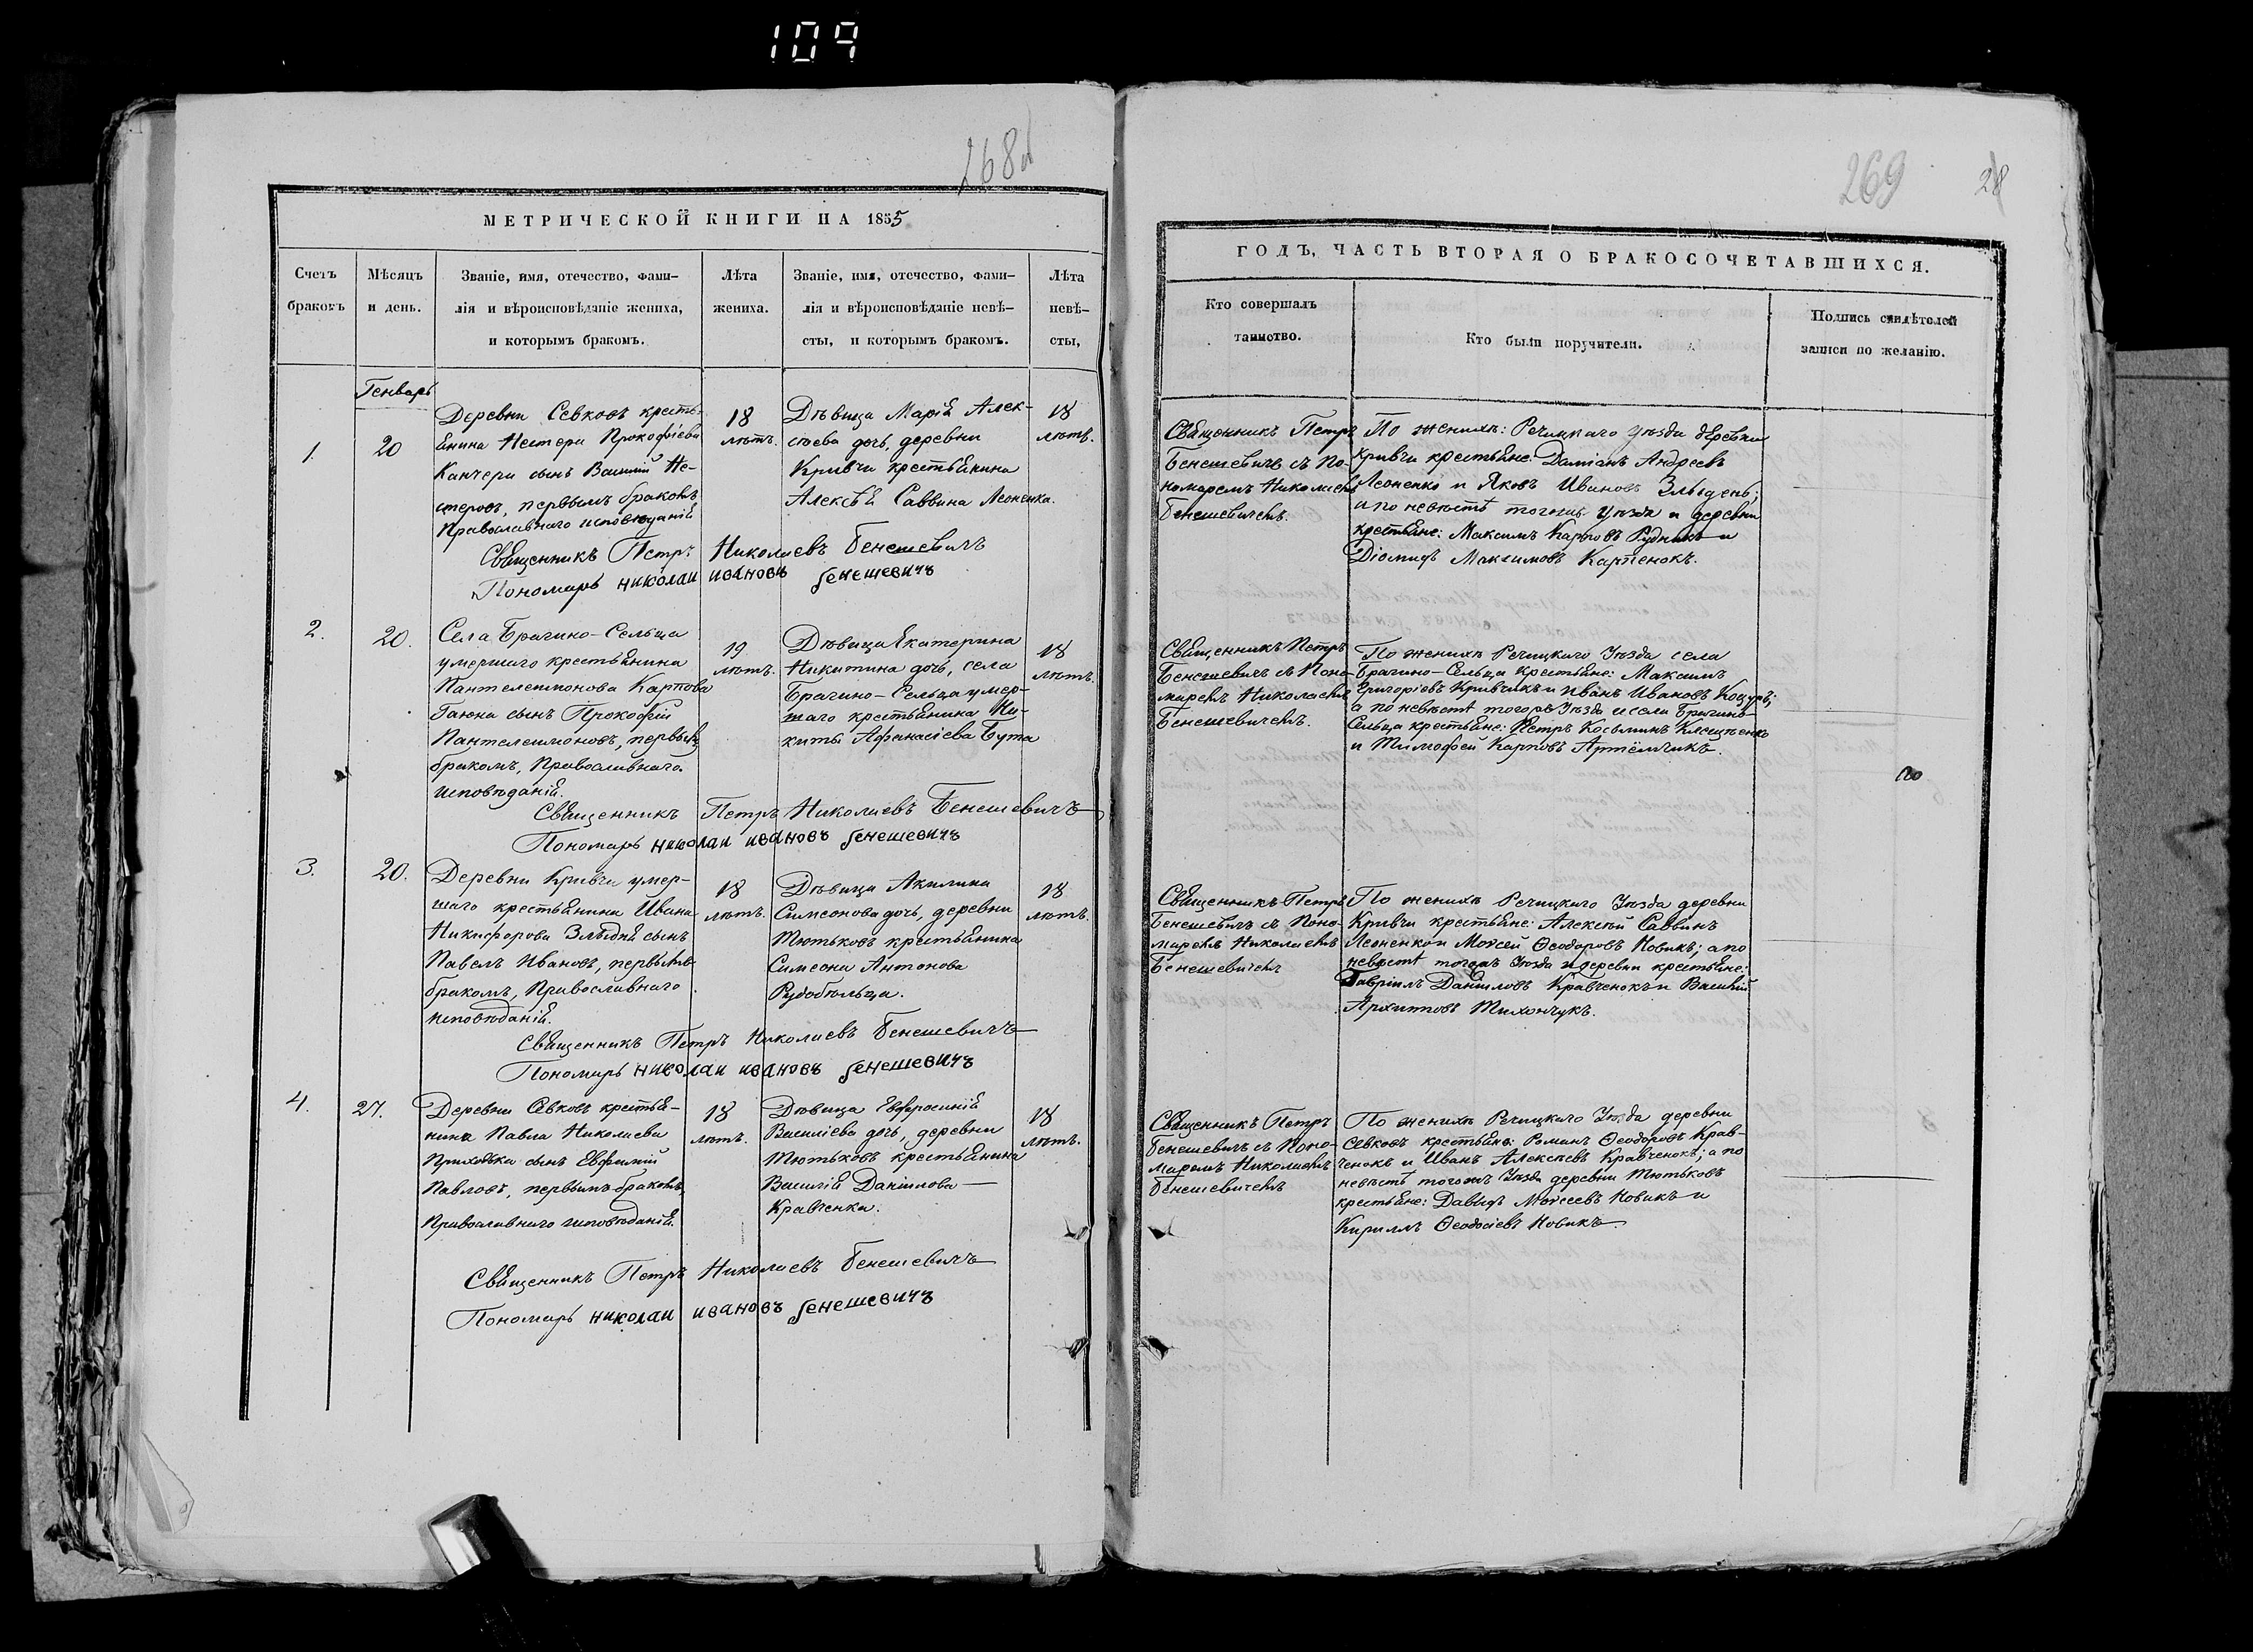 109
268
МЕТРИЧЕСКОЙ КНИГИ НА 1855
Счетъ
браковъ
Мѣсяцъ
и день.
Званіе, имя, отечество, фами-
лія и вѣроисповѣданіе жениха,
и которымъ бракомъ.
Лѣта
жениха.
Званіе, имя, отечество, фами-
лія и вѣроисповѣданіе невѣ-
сты, и которымъ бракомъ.
Лѣта
невѣ-
сты,
Генварь
1.
20
Деревни Севковъ кресть-
янина Нестера Прокофіева
Канчера сынъ Василій Не-
стеровъ, первымъ бракомъ
Православнаго исповѣданія
18
лѣтъ.
Дѣвица Марія Алек-
сѣева дочь, деревни
Кривчи крестьянина
Алексѣя Саввина Леоненка.
18
лѣтъ.
Священникъ Петръ Николаевъ Бенешевичъ
Пономарь николаи ивановъ бенешевичъ
2.
20.
Села Брагино-Сельца
умершаго крестьянина
Пантелеимонова Карпова
Гаюна сынъ Прокофій
Пантелеимоновъ, первымъ
бракомъ, Православнаго
исповѣданія.
19
лѣтъ.
Дѣвица Екатерина
Никитина дочь, села
Брагино-Сельца умер-
шаго крестьянина Ни-
киты Афанасіева Бута
18
лѣтъ.
Священникъ Петръ Николаевъ Бенешевичъ
Пономарь николаи ивановъ бенешевичъ
3.
20.
Деревни Кривчи умер-
шаго крестьянина Ивана
Никифорова Злыдня сынъ
Павелъ Ивановъ, первымъ
бракомъ, Православнаго
исповѣданія.
18
лѣтъ.
Дѣвица Акилина
Симеонова дочь, деревни
Тютьковъ крестьянина
Симеона Антонова
Рудобѣльца.
18
лѣтъ.
Священникъ Петръ Николаевъ Бенешевичъ
Пономарь николаи ивановъ бенешевичъ
4.
27.
Деревни Севковъ крестья-
нина Павла Николаева
Приходька сынъ Евфимій
Павловъ, первымъ бракомъ,
Православнаго исповѣданія.
18
лѣтъ.
Дѣвица Евфросинія
Василіева дочь, деревни
Тютьковъ крестьянина
Василія Даніилова
Кравченка.
18
лѣтъ.
Священникъ Петръ Николаевъ Бенешевичъ
Пономарь николаи ивановъ бенешевичъ
269
28
ГОДЪ, ЧАСТЬ ВТОРАЯ О БРАКОСОЧЕТАВШИХСЯ.
Кто совершалъ
таинство.
Кто были поручители.
Подпись свидѣтелей
записи по желанію.
Священникъ Петръ
Бенешевичъ съ По-
номаремъ Николаемъ
Бенешевичемъ.
По женихѣ: Речицкаго Уѣзда деревни
Кривчи крестьяне: Даміанъ Андреевъ
Леоненко и Яковъ Ивановъ Злыдень;
а по невѣстѣ тогожъ Уѣзда и деревни
крестьяне: Максимъ Карповъ Рудникъ и
Діомидъ Максимовъ Карпенокъ.
Священникъ Петръ
Бенешевичъ съ Поно-
маремъ Николаемъ
Бенешевичемъ.
По женихѣ Речицкаго Уѣзда села
Брагино-Сельца крестьяне: Максимъ
Григоріевъ Кривчикъ и Иванъ Ивановъ Коцуръ;
а по невѣстѣ тогожъ Уѣзда и села Брагино-
Сельца крестьяне: Петръ Косьминъ Клещенко
и Тимофей Карповъ Артёмчикъ.
Священникъ Петръ
Бенешевичъ съ Поно-
маремъ Николаемъ
Бенешевичемъ
По женихѣ Речицкаго Уѣзда деревни
Кривчи крестьяне: Алексѣй Саввинъ
Леоненко и Моѵсей Ѳеодоровъ Новикъ; а по
невѣстѣ тогожъ Уѣзда и деревни крестьяне:
Гавріилъ Даніиловъ Кравченокъ и Василій
Архиповъ Тихончукъ.
Священникъ Петръ
Бенешевичъ съ Поно-
маремъ Николаемъ
Бенешевичемъ
По женихѣ Речицкаго Уѣзда деревни
Севковъ крестьяне: Романъ Ѳеодоровъ Крав-
ченокъ и Иванъ Алексѣевъ Кравченокъ; а по
невѣстѣ тогожъ Уѣзда деревни Тютьковъ
крестьяне: Давидъ Моѵсеевъ Новикъ и
Кириллъ Ѳеодосіевъ Новикъ.